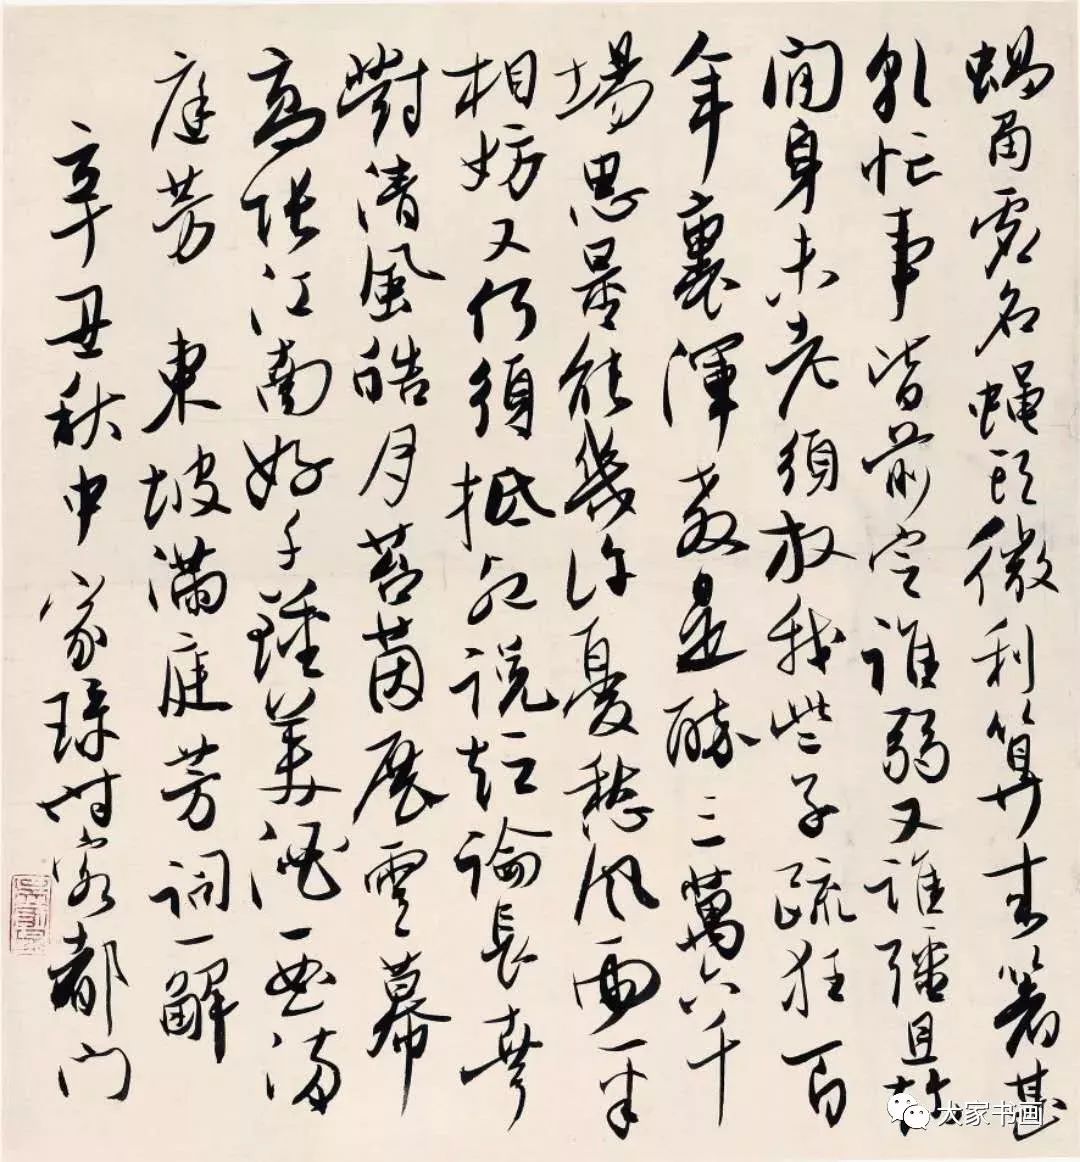 蝸角虛名蠅頭微利算来著甚
乾忙事皆前定誰弱又誰彊且趁
閒身未老須放我些子疏狂百
年裏渾教是醉三萬六千
場思量能幾許憂愁風雨一半
相妨又何須抵死說短論長幸
對清風皓月苔茵展雲幕
高張江南好千鍾美酒一曲滿
庭芳 東坡滿庭芳詞一解
辛丑秋中 家琭時客都門
大家书画